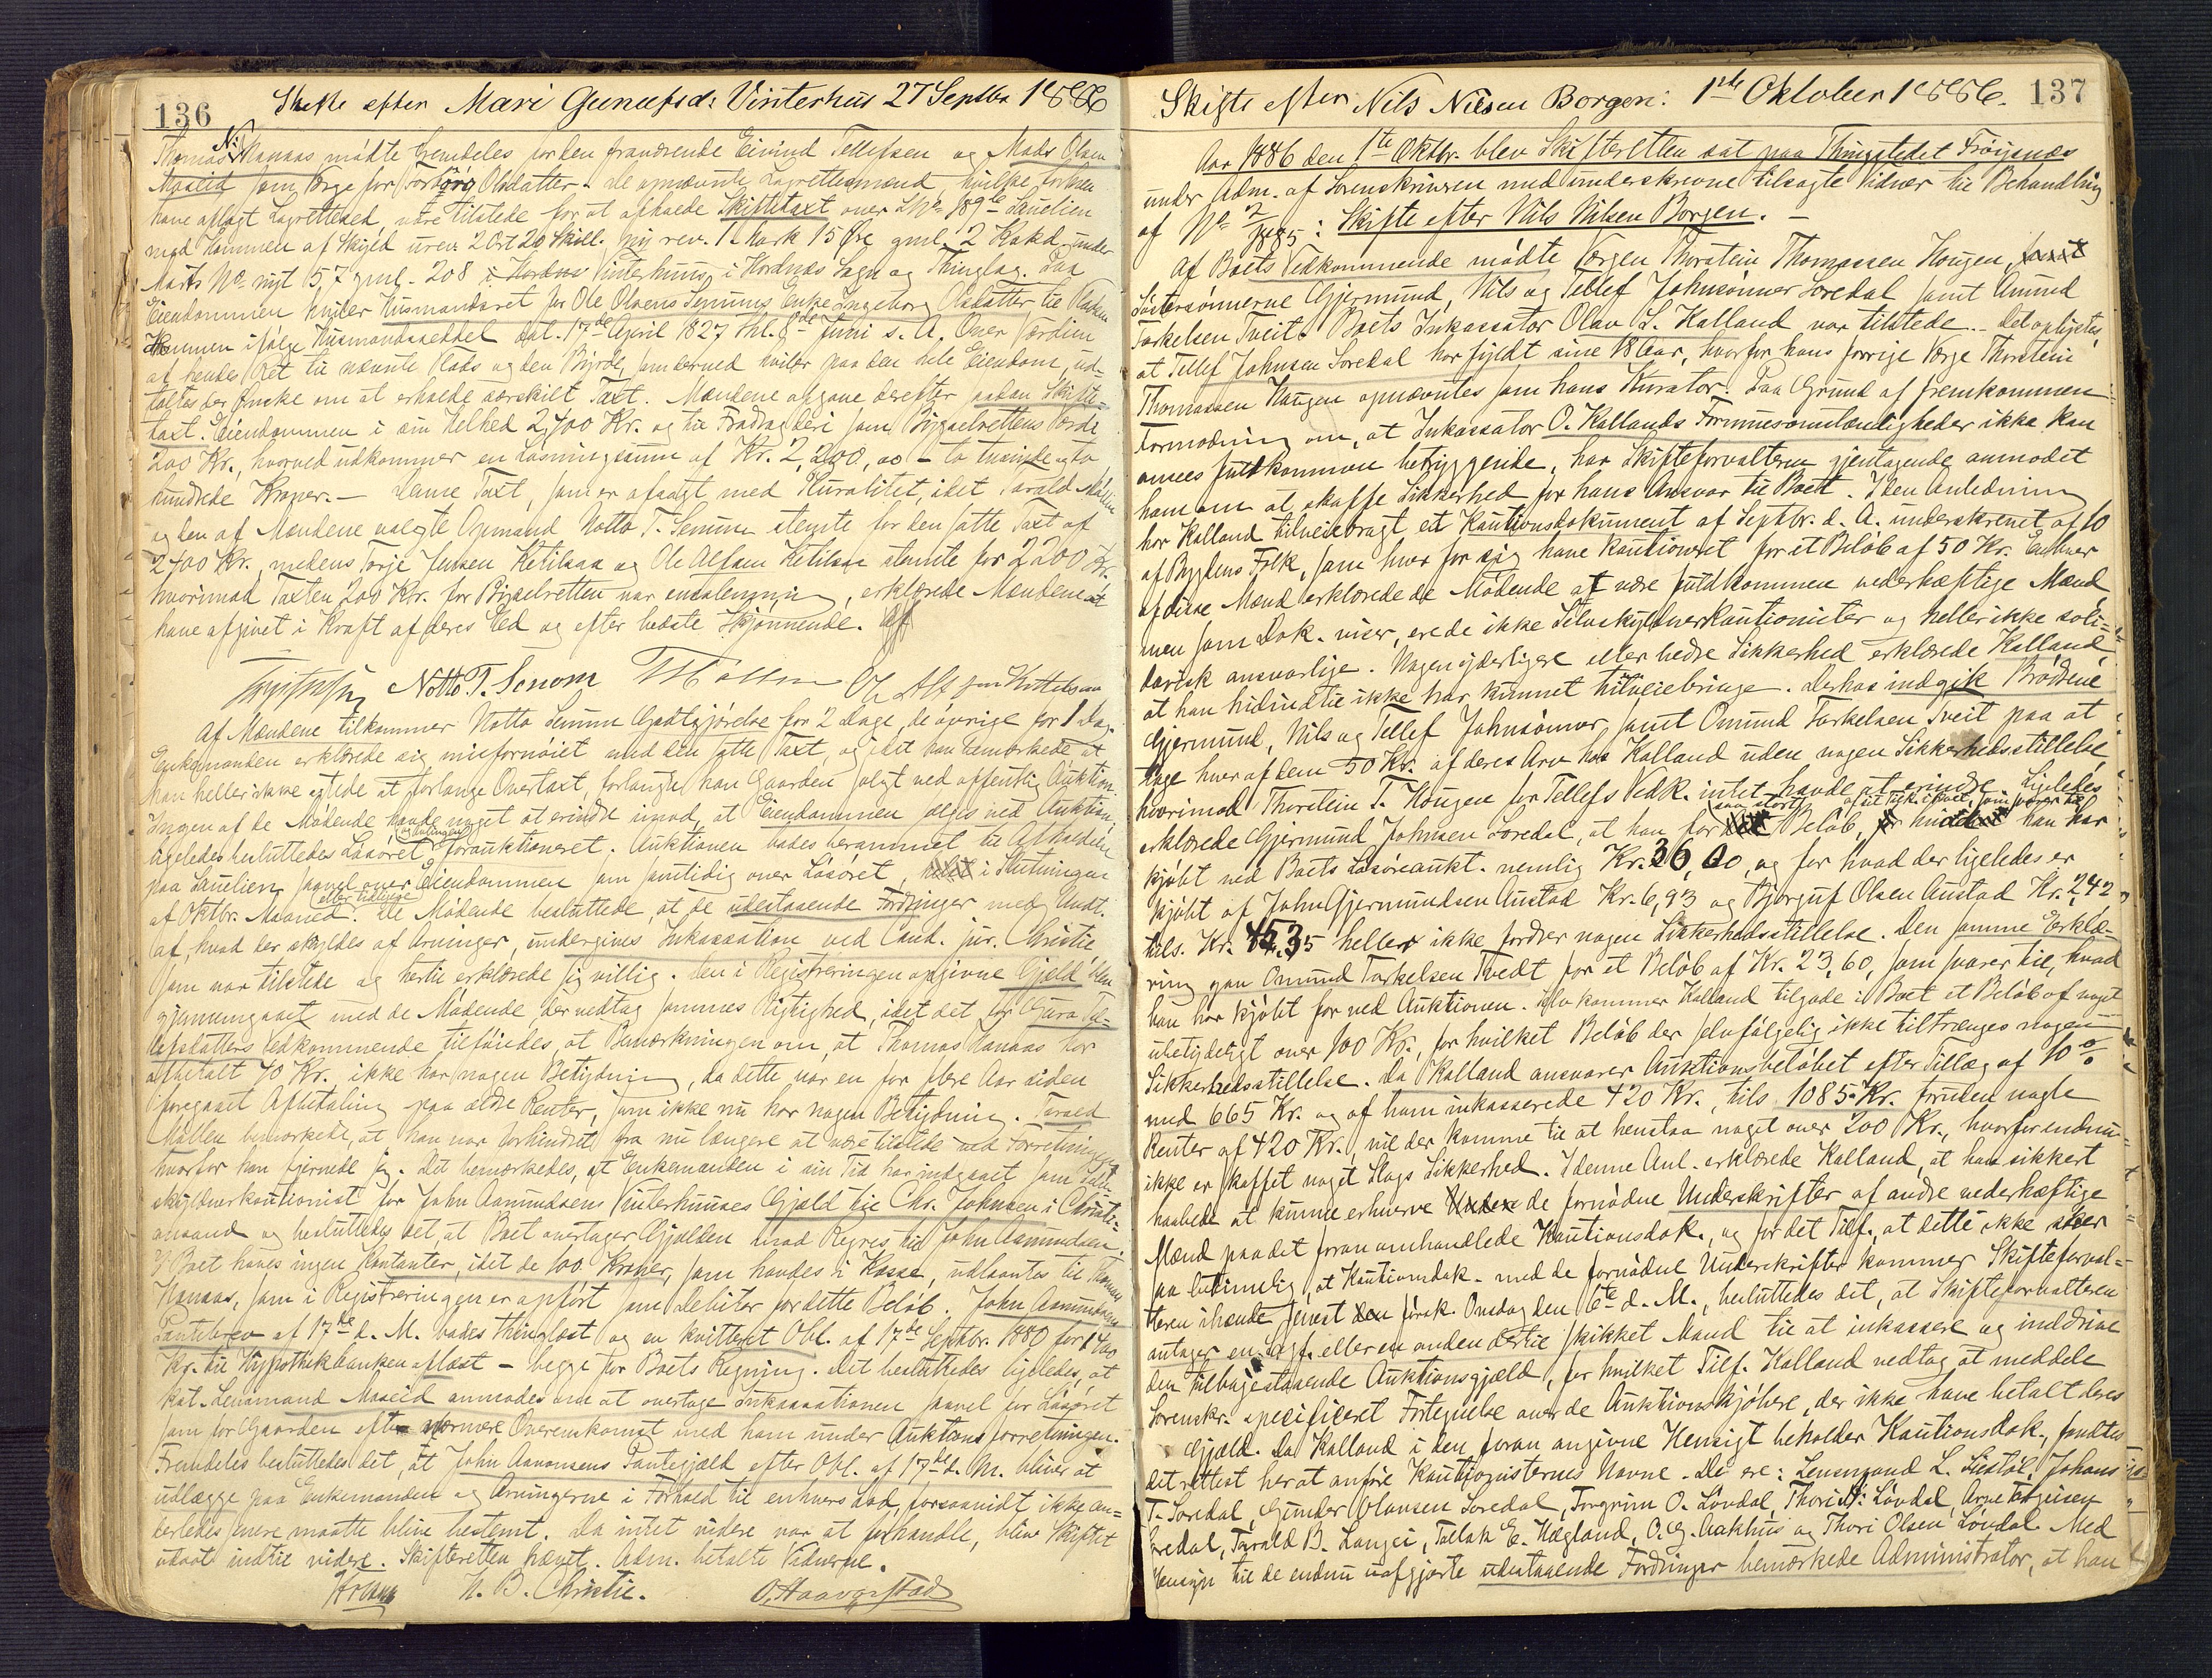 136 Skifte efter Mari Gunufsd: Vinterhus 27 Septbr 1886
Thomas N: Kanaas mødte fremdeles for den fraværende Eivind Tellefsen og Mads Olsen
Aaseid som Værge for Torborg Olsdatter. De opnævnte Lagrettesmænd, hvilke forhen
have aflagt Lagretteed, vare tilstede for at afholde Skiftetaxt over LNo 189 Lauelien
med Rammen af Skyld urev. 2 Ort 20 Skill. ny rev. 1 Mark 15 Øre gml. 2 Kalvskind under
Matr. No nyt 57 gml. 208 Vinterhuus i Hordnæs Sogn og Thinglag. Paa
Eiendommen hviler Husmandsret for Ole Olsens Senums Enke Ingeborg Olsdatter til Pladsen
Rammen ifølge Husmandsseddel dat. 17de April 1827 thl. 8de Juni s. A. Over Værdien
af hendes Ret til nævnte Plads og den Byrde, som derved hviler paa den hele Eiendom, ud-
taltes der Ønske om at erholde særskilt Taxt. Mændene afgave derefter saadan Skifte-
taxt: Eiendommen i sin Helhed 2,400 Kr. og til Fradrag deri som Bygselrettens Værdi
200 Kr., hvorved udkommer en Løsningssum af Kr. 2,200,00 – to tusinde og to
hundrede Kroner. – Denne Taxt, som er afsagt med Pluralitet, idet Tarald Mollen
og den af Mændene valgte Opmand Notto T. Senum stemte for den satte Taxt af
2400 Kr., medens Torje Jensen Ketilsaa og Ole Alfsen Ketilsaa stemte for 2200 Kr.
hvorimod Taxten 200 Kr. for Bygselretten var enstemmig, erklærede Mændene at
have afgivet i Kraft af deres Ed og efter bedste Skjønnende.
Notto T. Senom T Mollen Ole Alfsen Kettelsaa
Af Mændene tilkommer Notto Senum Godtgjørelse for 2 Dage, de øvrige for 1 Dag.
Enkemanden erklærede sig misfornøiet med den satte Taxt, og idet han bemærkede at
han heller ikke agtede at forlange Overtaxt, forlangte han Gaarden solgt ved offentlig Auktion.
Ingen af de Mødende havde noget at erindre imod, at Eiendommen sælges ved Auktion,
ligeledes besluttedes Løsøret forauktioneret. Auktionen bades berammet til Afholdelse
paa Lauelien, saavel over Eiendommen som samtidig over Løsøret, i Slutningen
af Oktbr. Maaned eller tidligere. De Mødende besluttede, at de udestaaende Fordringer med Undt.
af, hvad der skyldes af Arvinger, undergives Inkassation ved Cand. jur. Christie
som var tilstede og hertil erklærede sig villig. Den i Registreringen opgivne Gjæld blev
gjennemgaaet med de Mødende, der vedtog sammes Rigtighed, idet det for Guro Tel-
lefsdatters Vedkommende tilføiedes, at Bemærkningen om, at Thomas Kanaas har
afbetalt 40 Kr. ikke har nogen Betydning, da dette var en for flere Aar siden
foregaaet Afbetaling paa ældre Renter, som ikke nu har nogen Betydning. Tarald
Mollen bemærkede, at han var forhindret fra nu længere at være tilstede ved Forretningen,
hvorfor han fjernede sig. Det bemærkedes, at Enkemanden i sin Tid har indgaaet som Selv-
skyldnerkautionist for John Aamundsens Vinterhuuses Gjæld til Chr. Johnsen i Christi-
ansand og besluttedes det, at Boet overtager Gjælden mod Regres til John Aamundsen.
I Boet haves ingen Kontanter, idet de 100 Kroner, som havdes i Kassa, udlaantes til Thomas
Kanaas, som i Registreringen er opført som Debitor for dette Beløb. John Aamundsens
Pantebrev af 17de d. M. bades thinglæst og en kvitteret Obl. af 17de Septbr. 1880 for
Kr. til Hypothekbanken aflæst – begge for Boets Regning. Det besluttedes ligeledes, at
kst. Lensmand Aaseid anmodes om at overtage Inkassationen saavel for Løsøret
som for Gaarden efter nærmere Overenskomst med ham under Auktionsforretningen.
Fremdeles besluttedes det, at John Aanonsens Pantegjæld efter Obl. af 17de d. M. bliver at
udlægge paa Enkemanden og Arvingerne i Forhold til enhvers Lod, forsaavidt ikke an-
derledes senere maatte blive bestemt. Da intet videre var at forhandle, blev Skiftet
udsat indtil videre. Skifteretten hævet. Adm. betalte Vidnerne.
H. B. Christie. O. Haavorstad
Skifte efter Nils Nilsen Borgen: 1ste Oktober 1886. 137
Aar 1886 den 1ste Oktbr. blev Skifteretten sat paa Thingstedet Frøisnæs
under Adm. af Sorenskriveren med underskrevne tilsagte Vidner til Behandling
af No 2/1885: Skifte efter Nils Nilsen Borgen. –
Af Boets Vedkommende mødte Værgen Thorstein Thomassen Haugen,
Søstersønnerne Gjermund, Nils og Tellef Johnsønner Soredal samt Omund
Tarkelsen Tveit. Boets Inkassator Olav L. Kalland var tilstede. – Det oplystes,
at Tellef Johnsen Soredal har fyldt sine 18 Aar, hvorfor hans forrige Værge Thorstein
Thomassen Haugen opnævntes som hans Kurator. Paa Grund af fremkommen
Formodning om, at Inkassator O. Kallands Formuesomstændigheder ikke kan
ansees fuldkommen betryggende, har Skifteforvalteren gjentagende anmodet
ham om at skaffe Sikkerhed for hans Ansvar til Boet. I den Anledning
har Kalland tilveiebragt et Kautionsdokument af Septbr. d. A. underskrevet af 10
af Bygdens Folk, som hver for sig have kautioneret for et Beløb af 50 Kr. Enhver
af disse Mænd erklærede de Mødende at være fuldkommen vederhæftige Mænd
men som Dok. viser, ere de ikke Selvskyldnerkautionister og heller ikke soli-
darisk ansvarlige. Nogen yderligere eller bedre Sikkerhed erklærede Kalland,
at han hidindtil ikke har kunnet tilveiebringe. Derhos indgik Brødrene
Gjermund, Nils og Tellef Johnsønner samt Omund Tarkelsen Tveit paa at
tage hver af dem 50 Kr. af deres Arv hos Kalland uden nogen Sikkerhedsstillelse,
hvorimod Thorstein T. Haugen for Tellefs Vedk. intet havde at erindre. Ligeledes
erklærede Gjermund Johnsen Soredal, at han for saa stort Beløb, af sit Tilk. i Boet, som svarer til hvad han har
kjøbt ved Boets Løsøreaukt. nemlig Kr. 36,00, og for hvad der ligeledes er
kjøbt af John Gjermundsen Austad Kr. 6,93 og Bjorguf Olsen Austad Kr. 2,42
tils. Kr. 45,35 heller ikke fordrer nogen Sikkerhedsstillelse. Den samme Erklæ-
ring gav Omund Tarkelsen Tvedt for et Beløb af Kr. 23,60, som svarer til, hvad
han har kjøbt for ved Auktionen. Selv kommer Kalland tilgode i Boet et Beløb af noget
ubetydeligt over 100 Kr., for hvilket Beløb der selvfølgelig ikke tiltrænges nogen
Sikkerhedsstillelse. Da Kalland ansvarer Auktionsbeløbet efter Tillæg af 10 %
med 665 Kr. og af ham inkasserede 420 Kr., tils 1085 Kr. foruden nogle
Renter af 420 Kr., vil der komme til at henstaa noget over 200 Kr., hvorfor endnu
ikke er skaffet noget Slags Sikkerhed. I denne Anl. erklærede Kalland, at han sikkert
haabede at kunne erhverve de fornødne Underskrifter af andre vederhæftige
Mænd paa det foran omhandlede Kautionsdok., og for det Tilf., at dette ikke skeer
saa betimelig, at Kautionsdok. med de fornødne Underskrifter kommer Skifteforval-
teren ihænde senest førstk. Onsdag den 6te d. M., besluttedes det, at Skifteforvalteren
antager en Sagf. eller en anden dertil skikket Mand til at inkassere og inddrive
den tilbagestaaende Auktionsgjæld, for hvilket Tilf. Kalland vedtog at meddele
Sorenskr. specificeret Fortegnelse over de Auktionskjøbere, der ikke have betalt deres
Gjæld. Da Kalland i den foran angivne Hensigt beholder Kautionsdok., fandtes
det rettest her at anføre Kautionisternes Navne. De ere: Lensmand L. Liestøl, Johans
T. Soredal, Gunder Olausen Soredal, Torgrim O. Løvdal, Thori N: Løvdal, Arne
Soredal, Tarald B. Langei, Tallak E. Hægland, O. G. Aakhus og Thori Olsen Løvdal. Med
Hensyn til de endnu uafgjorte udestaaende Fordringer bemærkede Administrator, at han